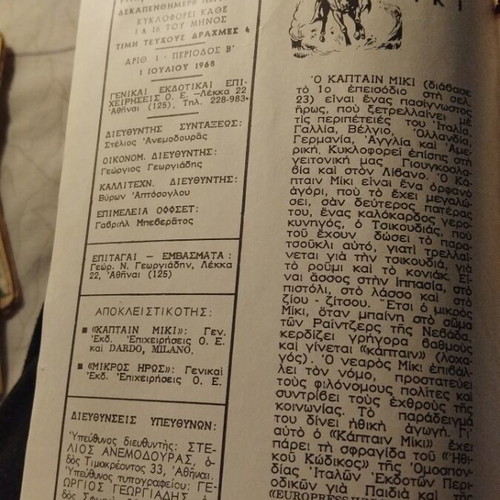 ΔΕΚΑΠΕΝΘΗΜΕΡΟ
ΚΥΚΛΟΦΟΡΕΙ ΚΑΘΕ
1 & 16 ΤΟΥ ΜΗΝΟΣ
ΤΙΜΗ ΤΕΥΧΟΥΣ ΔΡΑΧΜΕΣ 4
ΑΡΙΘ. 1 - ΠΕΡΙΟΔΟΣ Β'
1 ΙΟΥΛΙΟΥ 1968
ΓΕΝΙΚΑΙ ΕΚΔΟΤΙΚΑΙ ΕΠΙ-
ΧΕΙΡΗΣΕΙΣ Ο. Ε. — Λέκκα 22
Ἀθῆναι (125), Τηλ. 228-983
ΔΙΕΥΘΥΝΤΗΣ ΣΥΝΤΑΞΕΩΣ:
Στέλιος Ἀνεμοδουρᾶς
ΟΙΚΟΝΟΜ. ΔΙΕΥΘΥΝΤΗΣ:
Γεώργιος Γεωργιάδης
ΚΑΛΛΙΤΕΧΝ. ΔΙΕΥΘΥΝΤΗΣ:
Βύρων Ἀπτόσογλου
ΕΠΙΜΕΛΕΙΑ ΟΦΦΣΕΤ:
Γαβριήλ Μπεθερᾶτος
ΕΠΙΤΑΓΑΙ — ΕΜΒΑΣΜΑΤΑ:
Γεώρ. Ν. Γεωργιάδην, Λέκκα
22, Ἀθῆναι (125)
ΑΠΟΚΛΕΙΣΤΙΚΟΤΗΣ:
■ «ΚΑΠΤΑΙΝ ΜΙΚΙ»: Γεν.
Ἐκδ. Ἐπιχειρήσεις Ο. Ε.
καὶ DARDO, MILANO.
■ «ΜΙΚΡΟΣ ΗΡΩΣ»: Γενικαὶ
Ἐκδ. Ἐπιχειρήσεις Ο. Ε.
ΔΙΕΥΘΥΝΣΕΙΣ ΥΠΕΥΘΥΝΩΝ:
Ὑπεύθυνος διευθυντής: ΣΤΕ-
ΛΙΟΣ ΑΝΕΜΟΔΟΥΡΑΣ, ὁ-
δὸς Τιμοκρέοντος 33, Ἀθῆναι.
Ὑπεύθυνος τυπογραφείου: ΓΕ-
ΩΡΓΙΟΣ ΓΕΩΡΓΙΑΔΗΣ, ὁ-
Ὁ ΚΑΠΤΑΙΝ ΜΙΚΙ (διάβασε
τὸ 1ο ἐπεισόδιο στὴ σελ.
23) εἶναι ἕνας πασίγνωστος
ἥρως, ποὺ ξετρελλαίνει μὲ
τὶς περιπέτειές του Ἰταλία,
Γαλλία, Βέλγιο, Ὁλλανδία,
Γερμανία, Ἀγγλία καὶ Ἀμε-
ρική. Κυκλοφορεῖ ἐπίσης στὴ
γειτονική μας Γιουγκοσλα-
βία καὶ στὸν Λίβανο. Ὁ Κά-
πταιν Μίκι εἶναι ἕνα ὀρφανὸ
ἀγόρι, ποὺ τὸ ἔχει μεγαλώ-
σει, σὰν δεύτερος πατέρας
του, ἕνας καλόκαρδος γερο-
κυνηγός, ὁ Τσικουδιάς, ποὺ
τοῦ ἔχουν δώσει τὸ παρα-
τσούκλι αὐτό, γιατὶ τρελλαί-
νεται γιὰ τὴν τσικουδιά, γιὰ
τὸ ρούμι καὶ τὸ κονιάκ. Εἶ-
ναι ἄσσος στὴν ἱππασία, στὸ
πιστόλι, στὸ λάσσο καὶ στὸ
ζίου - ζίτσου. Ἔτσι ὁ μικρὸς
Μίκι, ὅταν μπαίνη στὸ σῶμα
τῶν Ραίντζερς τῆς Νεβάδα,
κερδίζει γρήγορα βαθμοὺς
καὶ γίνεται «κάπταιν» (λοχα-
γός). Ὁ νεαρὸς Μίκι ἐπιβάλ-
λει τὸν νόμο, προστατεύει
τοὺς φιλόνομους πολίτες καὶ
συντρίβει τοὺς ἐχθροὺς τῆς
κοινωνίας. Τὸ παράδειγμά
του δίνει ἠθικὴ ἀγωγή. Γι'
αὐτὸ ὁ «Κάπταιν Μίκι» ἔχει
πάρει τὴ σφραγῖδα τοῦ «Ἠθι-
κοῦ Κώδικος» τῆς Ὁμοσπον-
δίας Ἰταλῶν Ἐκδοτῶν Περι-
οδικῶν γιὰ Παιδιὰ καὶ τῆς